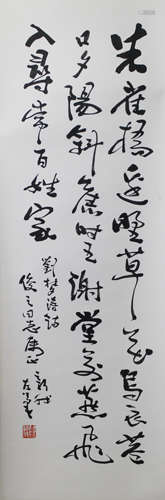 朱雀橋邊野草花烏衣巷
口夕陽斜舊時王謝堂前燕飛
入尋常百姓家
劉禹錫詩
俊之同志屬正